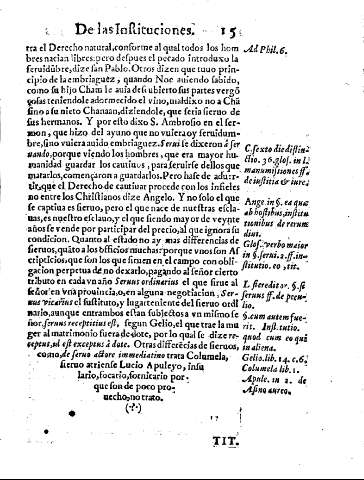 De las Instituciones. 15
tra el Derecho natural, conforme al qual todos los hom
bres nacian libres: pero despues el pecado introduxo la
seruidũbre, dize san Pablo. Otros dizen que tuuo prin-
cipio de la embriaguez, quando Noe auiendo sabido,
como su hijo Cham le auia descubierto sus partes vergõ
çosas teniendole adormecido el vino, maldixo no a Chã
sino a su nieto Chanaan, diziendole, que seria sieruo de
sus hermanos. Y por esto dixo S. Ambrosio en el ser-
mon, que hizo del ayuno que no vuiera oy seruidum-
bre, sino vuiera auido embriaguez. Serui se dixeron à ser
uando, porque viendo los hombres, que era mayor hu-
manidad guardar los cautiuos, para seruirse dellos que
matarlos, començaron a guardarlos. Pero hase de aduir-
tir, que el Derecho de cautiuar procede con los infieles
no entre los Christianos dize Angelo. Y no solo el que
se captiua es sieruo, pero el que nace de nuestras escla-
uas, es nuestro esclauo, y el que siendo mayor de veynte
años se vende por participar del precio, al que ignora su
condicion. Quanto al estado no ay mas diferencias de
sieruos, quãto a los officios muchas: porque vnos son As
cripticios, que son los que siruen en el campo con obli-
gacion perpetua de no dexarlo, pagando al señor cierto
tributo en cada vn año Seruus ordinarius el que sirue al
señor en vna prouincia, o en alguna negociacion, Ser-
uus vicarius el sustituto, y lugarteniente del sieruo ordi
nario, aunque entrambos estan subjectos a vn mismo se
ñor. seruus receptitius est, segun Gelio, el que trae la mu
ger al matrimonio fuera de dote, por lo qual se dize re-
ceptus, id est exceptus à dote. Otras differẽcias de sieruos,
como, de seruo actore immediatino trata Columela,
sieruo atriense Lucio Apuleyo, insu
lario, focario, fornicario por-
que son de poco pro-
uecho, no trato.
(·?·)
Ad Phil. 6.
C. sexto die distin
ctio. 36. glos. in l.
manumissiones ff.
de iustitia & iure.
Ange. in §. ea qua
ab hostibus, institu
tionibus de rerum
diui.
Glos. verbo maior
in §. serui. 2. ff. in-
stitutio. eo, tit.
L. si creditor. §. si
seruus ff. de pecu-
lio.
§. cum autem fue-
rit. Inst. tutio.
quod cum eo qui
in aliena.
Gelio. lib. 14. c. 6.
Columela lib. 1.
Apule. in 2. de
Asino aureo.
TIT.